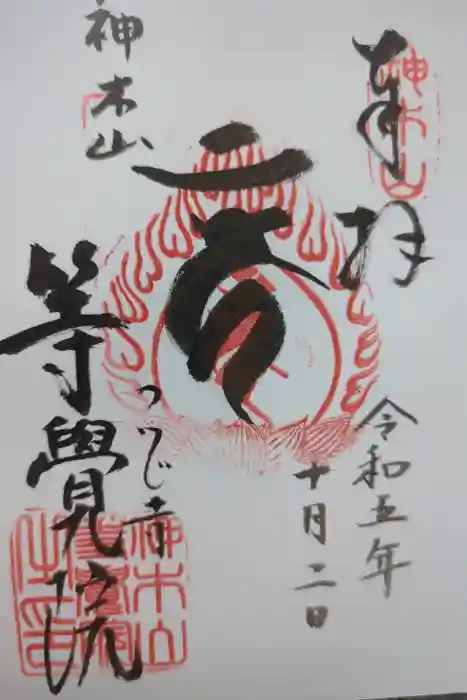 奉拝
神木山
令和五年
十月二日
神木山
つつじ寺
等覺院
神木山